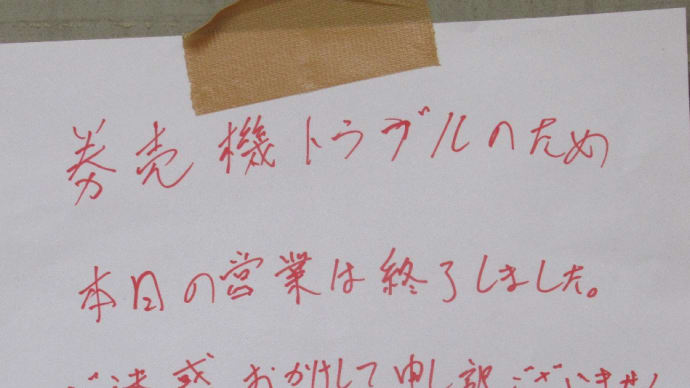 券売機トラブルのため
本日の営業は終了しました。
ご迷惑おかけして申し訳ございません